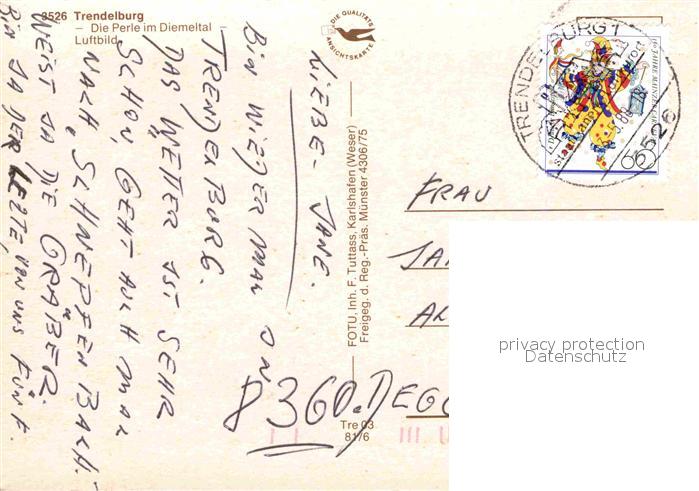 3526 Trendelburg
– Die Perle im Diemeltal –
Luftbild
DIE QUALITÄTS
ANSICHTSKARTE
LIEBE JANE.
BIN WIEDER MAL IN
TRENDELBURG.
DAS WETTER IST SEHR
SCHÖN GEHT AUCH MAL
NACH SCHNEPFENBACH.
WEIST JA DIE GRÄBER.
BIN JA DER LETZTE VON UNS FÜNF.
FOTU, Inh. F. Tuttass, Karlshafen (Weser)
Freigeg. d. Reg.-Präs. Münster 4306/75
Tre 03
81/6
TRENDELBURG 1
3526
150 JAHRE MAINZER CAR
60
FRAU
JA
AL
8360. DEGG
privacy protection
Datenschutz